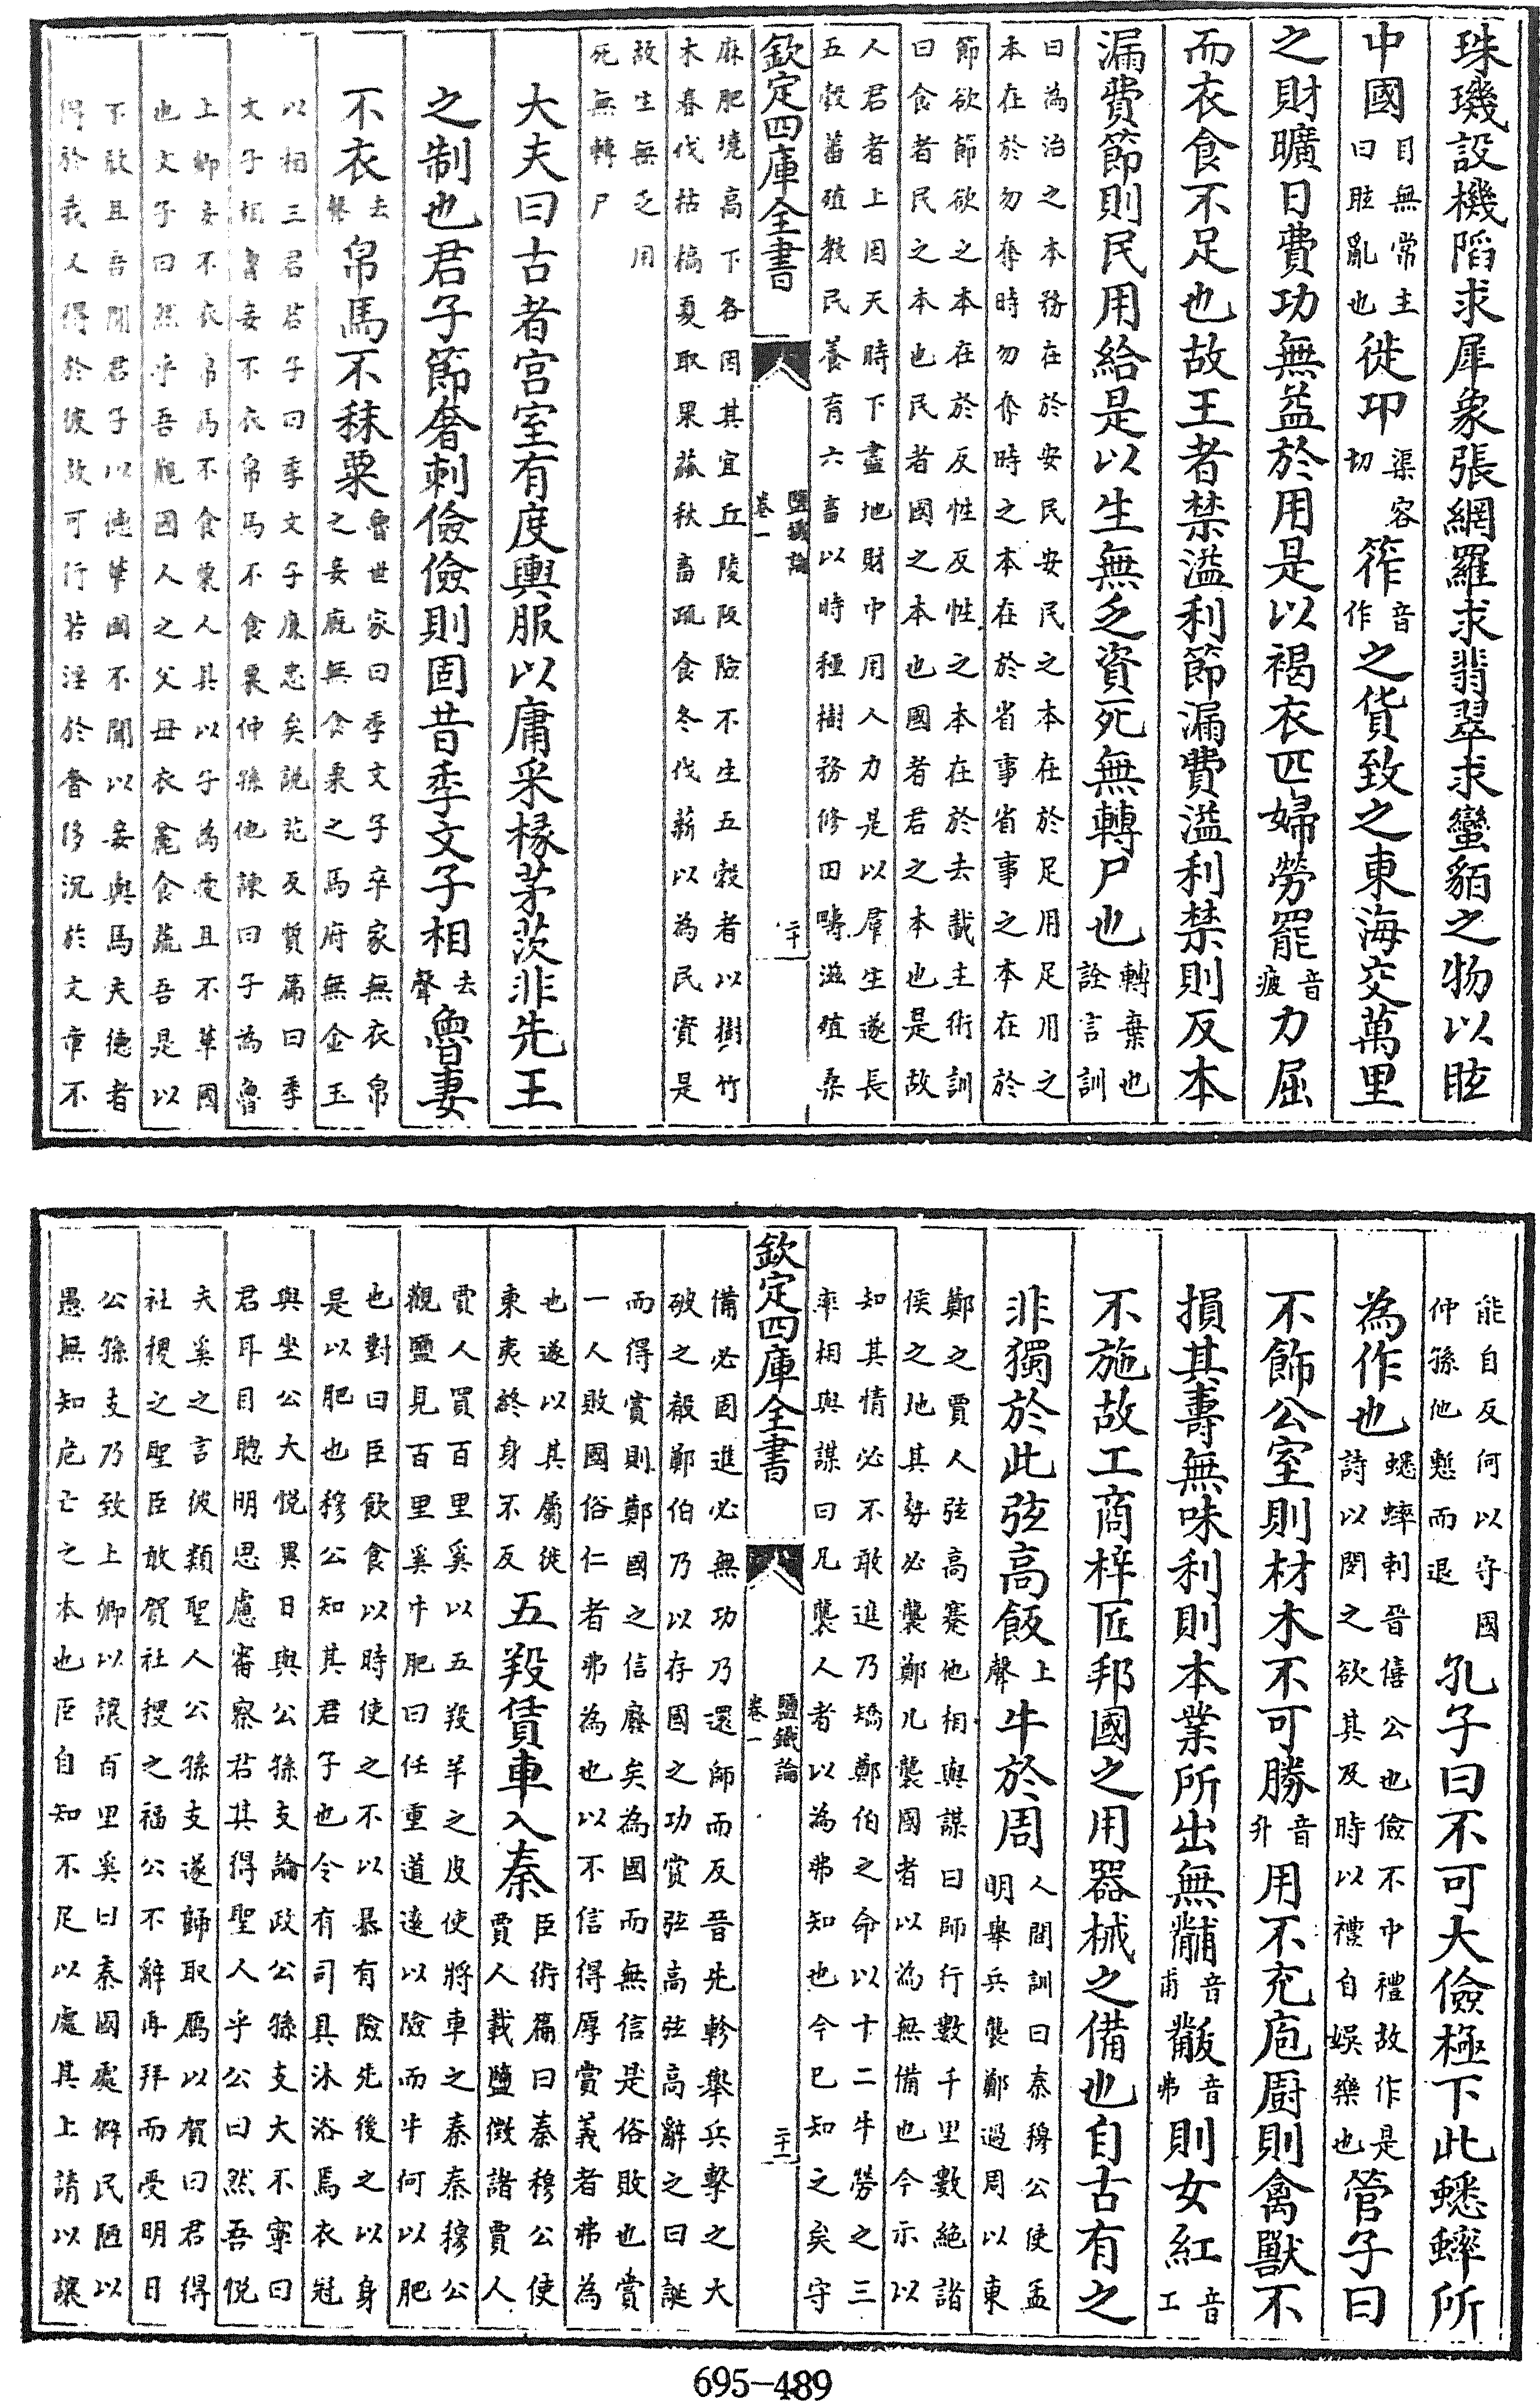 珠璣設機陷求犀象張網羅求翡翠求蠻貊之物以眩
中國目無常主曰眩亂也徙卭渠容切筰音作之貨致之東海交萬里
之財曠日費功無益於用是以褐衣匹婦勞罷音疲力屈
而衣食不足也故王者禁溢利節漏費溢利禁則反本
漏費節則民用給是以生無乏資死無轉尸也轉棄也詮言訓
曰為治之本務在於安民安民之本在於足用足用之
本在於勿奪時勿奪時之本在於省事省事之本在於
節欲節欲之本在於反性反性之本在於去載主術訓
曰食者民之本也民者國之本也國者君之本也是故
人君者上因天時下盡地財中用人力是以羣生遂長
五穀蕃殖教民養育六畜以時種樹務修田疇滋殖桑
欽定四庫全書
鹽鐵論
卷一
二十
麻肥墝高下各因其宜丘陵阪險不生五穀者以樹竹
木春伐枯槁夏取果蓏秋畜疏食冬伐薪以為民資是
故生無乏用
死無轉尸
大夫曰古者宮室有度輿服以庸采椽茅茨非先王
之制也君子節奢刺儉儉則固昔季文子相去聲魯妻
不衣去聲帛馬不秣粟魯世家曰季文子卒家無衣帛之妾廐無食粟之馬府無金玉
以相三君君子曰季文子廉忠矣說苑反質篇曰季
文子相魯妾不衣帛馬不食粟仲孫他諫曰子為魯
上卿妾不衣帛馬不食粟人其以子為愛且不華國
也文子曰然乎吾觀國人之父母衣麄食蔬吾是以
不敢且吾聞君子以德華國不聞以妾與馬夫德者
得於我又得於彼故可行若淫於奢侈沉於文章不
能自反何以守國仲孫他慙而退孔子曰不可大儉極下此蟋蟀所
為作也蟋蟀刺晉僖公也儉不中禮故作是詩以閔之欲其及時以禮自娛樂也管子曰
不飾公室則材木不可勝音升用不充庖厨則禽獸不
損其壽無味利則本業所出無黼音甫黻音弗則女紅音工
不施故工商梓匠邦國之用器械之備也自古有之
非獨於此弦高飯上聲牛於周人間訓曰秦穆公使孟明舉兵襲鄭過周以東
鄭之賈人弦高蹇他相與謀曰師行數千里數絶諸
侯之地其勢必襲鄭凡襲國者以為無備也今示以
知其情必不敢進乃矯鄭伯之命以十二牛勞之三
率相與謀曰凡襲人者以為弗知也今已知之矣守
欽定四庫全書
鹽鐵論
卷一
二十一
備必固進必無功乃還師而反晉先軫舉兵擊之大
破之殽鄭伯乃以存國之功賞弦高弦高辭之曰誕
而得賞則鄭國之信廢矣為國而無信是俗敗也賞
一人敗國俗仁者弗為也以不信得厚賞義者弗為
也遂以其屬徙東夷終身不反五羖賃車入秦臣術篇曰秦穆公使賈人載鹽徵諸賈人
賈人買百里奚以五羖羊之皮使將車之秦秦穆公
觀鹽見百里奚牛肥曰任重道遠以險而牛何以肥
也對曰臣飲食以時使之不以暴有險先後之以身
是以肥也穆公知其君子也令有司具沐浴焉衣冠
與坐公大悅異日與公孫支論政公孫支大不寧曰
君耳目聰明思慮審察君其得聖人乎公曰然吾悅
夫奚之言彼類聖人公孫支遂歸取鴈以賀曰君得
社稷之聖臣敢賀社稷之福公不辭再拜而受明日
公孫支乃致上卿以讓百里奚曰秦國處僻民陋以
愚無知危亡之本也臣自知不足以處其上請以讓
695-489